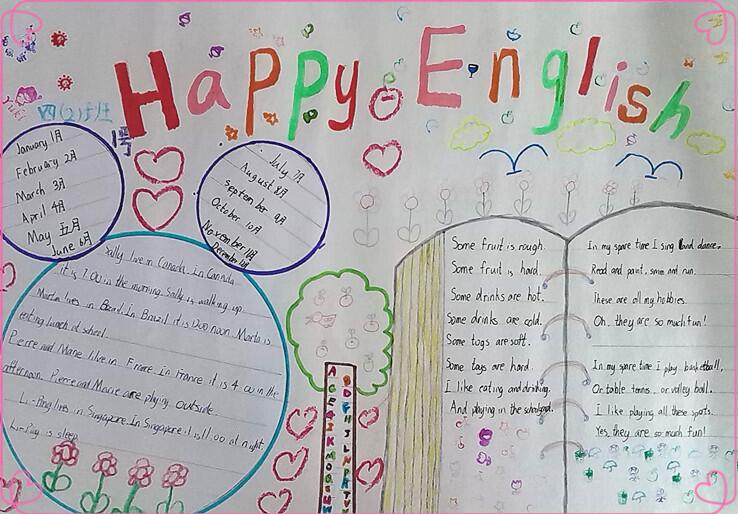 Happy English
四(2)班
January 1月
February 2月
March 3月
April 4月
May 五月
June 6月
July 7月
August 8月
September 9月
October 10月
November 11月
December 12月
Sally live in Canada. In Canada
it is 7.00 in the morning. Sally is walking up.
Marta lives in Brazil. In Brazil it is 1200 noon. Marta is
eating lunch at school.
Pierre and Marie live in France. In France it is 4.00 in the
afternoon. Pierre and Marie are playing outside.
Li-Ping lives in Singapore. In Singapore it is 11.00 at night.
Li-Ping is sleep
Some fruit is rough.
Some fruit is hard.
Some drinks are hot.
Some drinks are cold.
Some togs are soft.
Some toys are hard.
I like eating and drinking.
And playing in the schoolyard.
In my spare time I sing and dance.
Read and paint, swim and run.
These are all my hobbies.
Oh, they are so much fun!
In my spare time I play basketball,
Or table tennis, or valley ball.
I like playing all these sports.
Yes, they are so much fun!